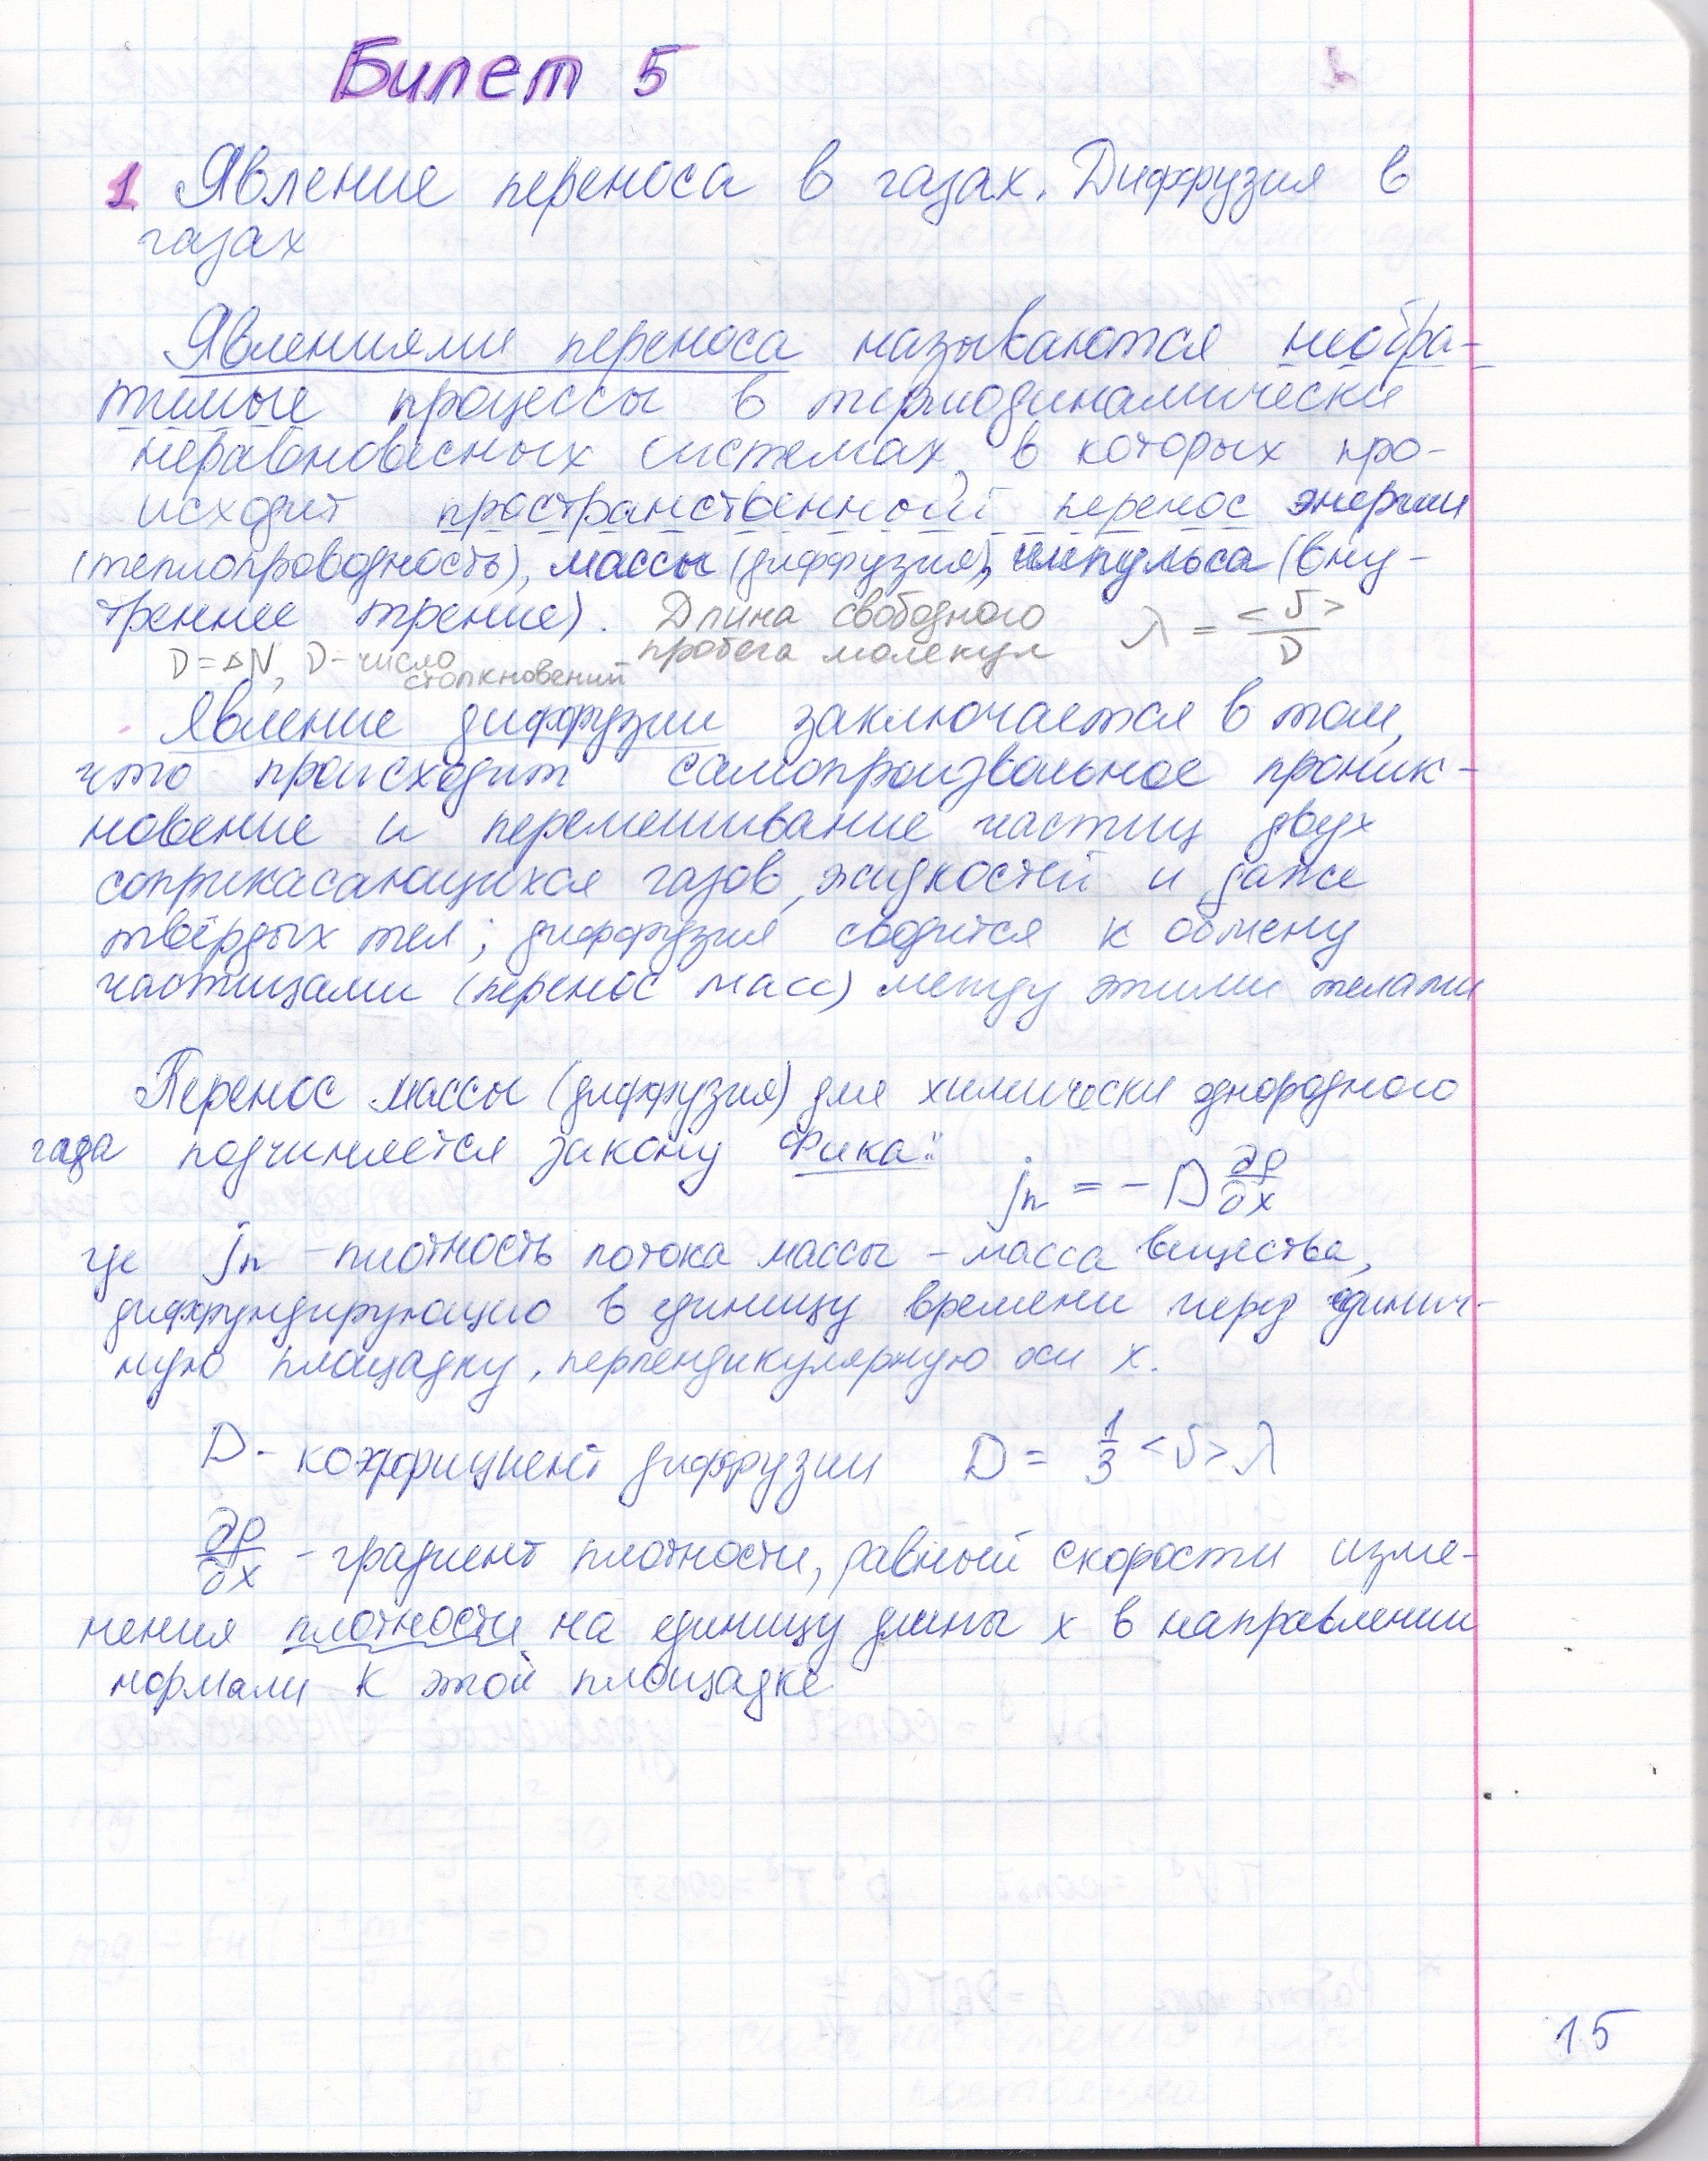 Билет 5
1. Явление переноса в газах. Диффузия в
газах
Явлениями переноса называются необра-
тимые процессы в термодинамически
неравновесных системах, в которых про-
исходит пространственный перенос энергии
(теплопроводность), массы (диффузия), импульса (вну-
треннее трение). Длина свободного λ = <υ>/D
D = ΔN, D - число пробега молекул
столкновений
Явление диффузии заключается в том,
что происходит самопроизвольное проник-
новение и перемешивание частиц двух
соприкасающихся газов, жидкостей и даже
твёрдых тел; диффузия сводится к обмену
частицами (перенос масс) между этими телами
Перенос массы (диффузия) для химически однородного
газа подчиняется закону Фика:
jn = - D ∂ρ/∂x
где jn - плотность потока массы - масса вещества,
диффундирующего в единицу времени через единич-
ную площадку, перпендикулярную оси x.
D - коэффициент диффузии D = 1/3 <υ> λ
∂ρ/∂x - градиент плотности, равный скорости изме-
нения плотности на единицу длины x в направлении
нормали к этой площадке
15